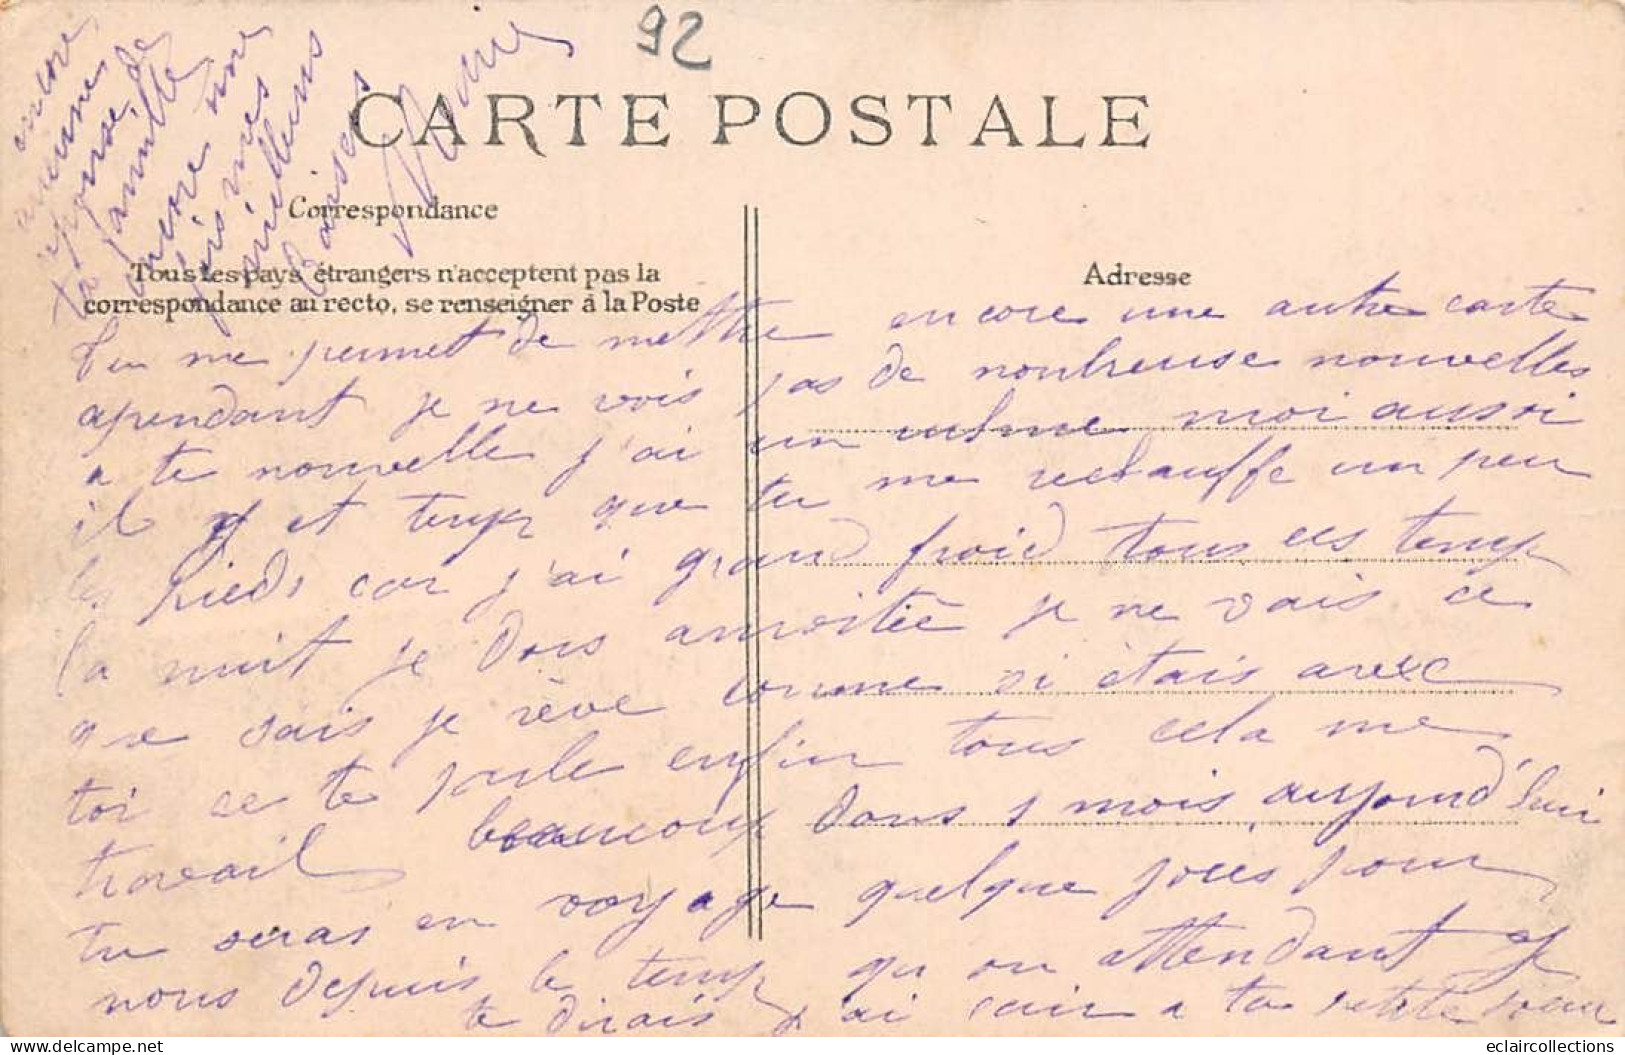 92
CARTE POSTALE
Correspondance
Tous les pays étrangers n'acceptent pas la
correspondance au recto, se renseigner à la Poste
Adresse
encore
aucune
réponse de
ta famille
encore une
fois mes
meilleurs
Baisers
Tu me permet de mettre encore une autre carte
cependant je ne vois pas de nombreuse nouvelles
a te nouvelle j'ai un moi aussi
il y et temps que tu me rechauffe un peu
les pieds car j'ai grand froid tous ces temps
la nuit je dors amoitiée je ne vais ce
que sais je rève comme si étais avec
toi ce te parle enfin tous cela me
travail beaucoup dans 1 mois aujourd'hui
tu seras en voyage quelque joures pour
nous depuis le temps qu on attendant
te dirais j'ai a ta petite
eclaircollections